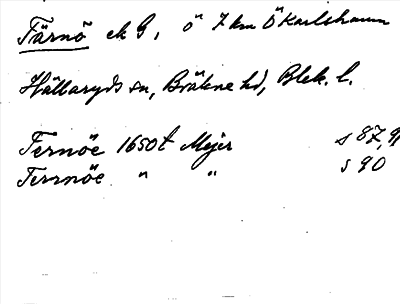 Tärnö ek G, ö 7 km Ö Karlshamn
Hällaryds sn, Bräkne hd, Blek. l.
Ternöe 1650t Mejer s 87,
Terrnöe " " s 90